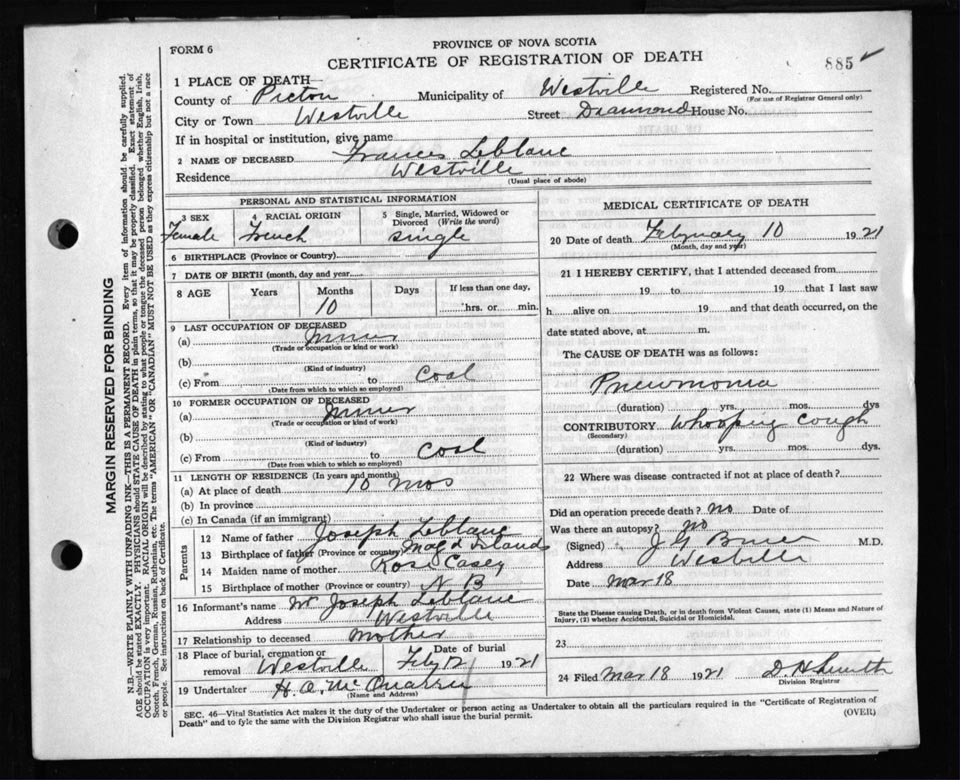 PROVINCE OF NOVA SCOTIA
FORM 6
CERTIFICATE OF REGISTRATION OF DEATH
885 ✓
1 PLACE OF DEATH—
County of Pictou Municipality of Westville Registered No.
(For use of Registrar General only)
City or Town Westville Street Diamond House No.
If in hospital or institution, give name
2 NAME OF DECEASED Frances Leblanc
Residence Westville
(Usual place of abode)
PERSONAL AND STATISTICAL INFORMATION
3 SEX 4 RACIAL ORIGIN 5 Single, Married, Widowed or Divorced (Write the word)
Female French single
6 BIRTHPLACE (Province or Country)
7 DATE OF BIRTH (month, day and year
8 AGE Years Months Days If less than one day,
10 hrs. or min.
9 LAST OCCUPATION OF DECEASED
(a) miner
(Trade or occupation or kind or work)
(b)
(Kind of industry)
(c) From to Coal
(Date from which to which so employed)
10 FORMER OCCUPATION OF DECEASED
(a) miner
(Trade or occupation or kind of work)
(b)
(Kind of industry)
(c) From to Coal
(Date from which to which so employed)
11 LENGTH OF RESIDENCE (In years and months)
(a) At place of death 10 mos
(b) In province
(c) In Canada (if an immigrant)
Parents
12 Name of father Joseph Leblanc
13 Birthplace of father (Province or country) Magd Islands
14 Maiden name of mother Rose Casey
15 Birthplace of mother (Province or country) N B
16 Informant's name Mr Joseph Leblanc
Address Westville
17 Relationship to deceased Mother
18 Place of burial, cremation or removal Westville Date of burial Feby 12 1921
19 Undertaker H. A. McQuarrie
(Name and Address)
MEDICAL CERTIFICATE OF DEATH
20 Date of death February 10 1921
(Month, day and year)
21 I HEREBY CERTIFY, that I attended deceased from
19 to 19 that I last saw
h alive on 19 and that death occurred, on the
date stated above, at m.
The CAUSE OF DEATH was as follows:
Pneumonia
(duration) yrs. mos. dys
CONTRIBUTORY Whooping Cough
(Secondary)
(duration) yrs. mos. dys.
22 Where was disease contracted if not at place of death?
Did an operation precede death? No Date of
Was there an autopsy? No
(Signed) J G M.D.
Address Westville
Date Mar 18
State the Disease causing Death, or in death from Violent Causes, state (1) Means and Nature of
Injury, (2) whether Accidental, Suicidal or Homicidal.
23
24 Filed Mar 18 1921 D. H Smith
Division Registrar
SEC. 46—Vital Statistics Act makes it the duty of the Undertaker or person acting as Undertaker to obtain all the particulars required in the "Certificate of Registration of
Death" and to fyle the same with the Division Registrar who shall issue the burial permit. (OVER)
MARGIN RESERVED FOR BINDING
N.B.—WRITE PLAINLY WITH UNFADING INK—THIS IS A PERMANENT RECORD. Every item of information should be carefully supplied.
AGE should be stated EXACTLY. PHYSICIANS should STATE CAUSE OF DEATH in plain terms, so that it may be properly classified. Exact statement of
OCCUPATION is very important. RACIAL ORIGIN will be described by stating to what people or tongue the deceased person belonged whether English, Irish,
Scotch, French, German, Russian, Ruthenian, etc. The terms "AMERICAN" OR "CANADIAN" MUST NOT BE USED as they express citizenship but not a race
or people. See instructions on back of Certificate.